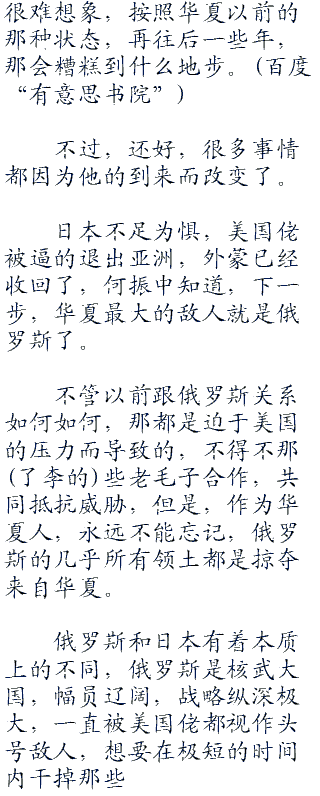 很难想象，按照华夏以前的
那种状态，再往后一些年，
那会糟糕到什么地步。(百度
“有意思书院”)
不过，还好，很多事情
都因为他的到来而改变了。
日本不足为惧，美国佬
被逼的退出亚洲，外蒙已经
收回了，何振中知道，下一
步，华夏最大的敌人就是俄
罗斯了。
不管以前跟俄罗斯关系
如何如何，那都是迫于美国
的压力而导致的，不得不那
(了李的)些老毛子合作，共
同抵抗威胁，但是，作为华
夏人，永远不能忘记，俄罗
斯的几乎所有领土都是掠夺
来自华夏。
俄罗斯和日本有着本质
上的不同，俄罗斯是核武大
国，幅员辽阔，战略纵深极
大，一直被美国佬都视作头
号敌人，想要在极短的时间
内干掉那些